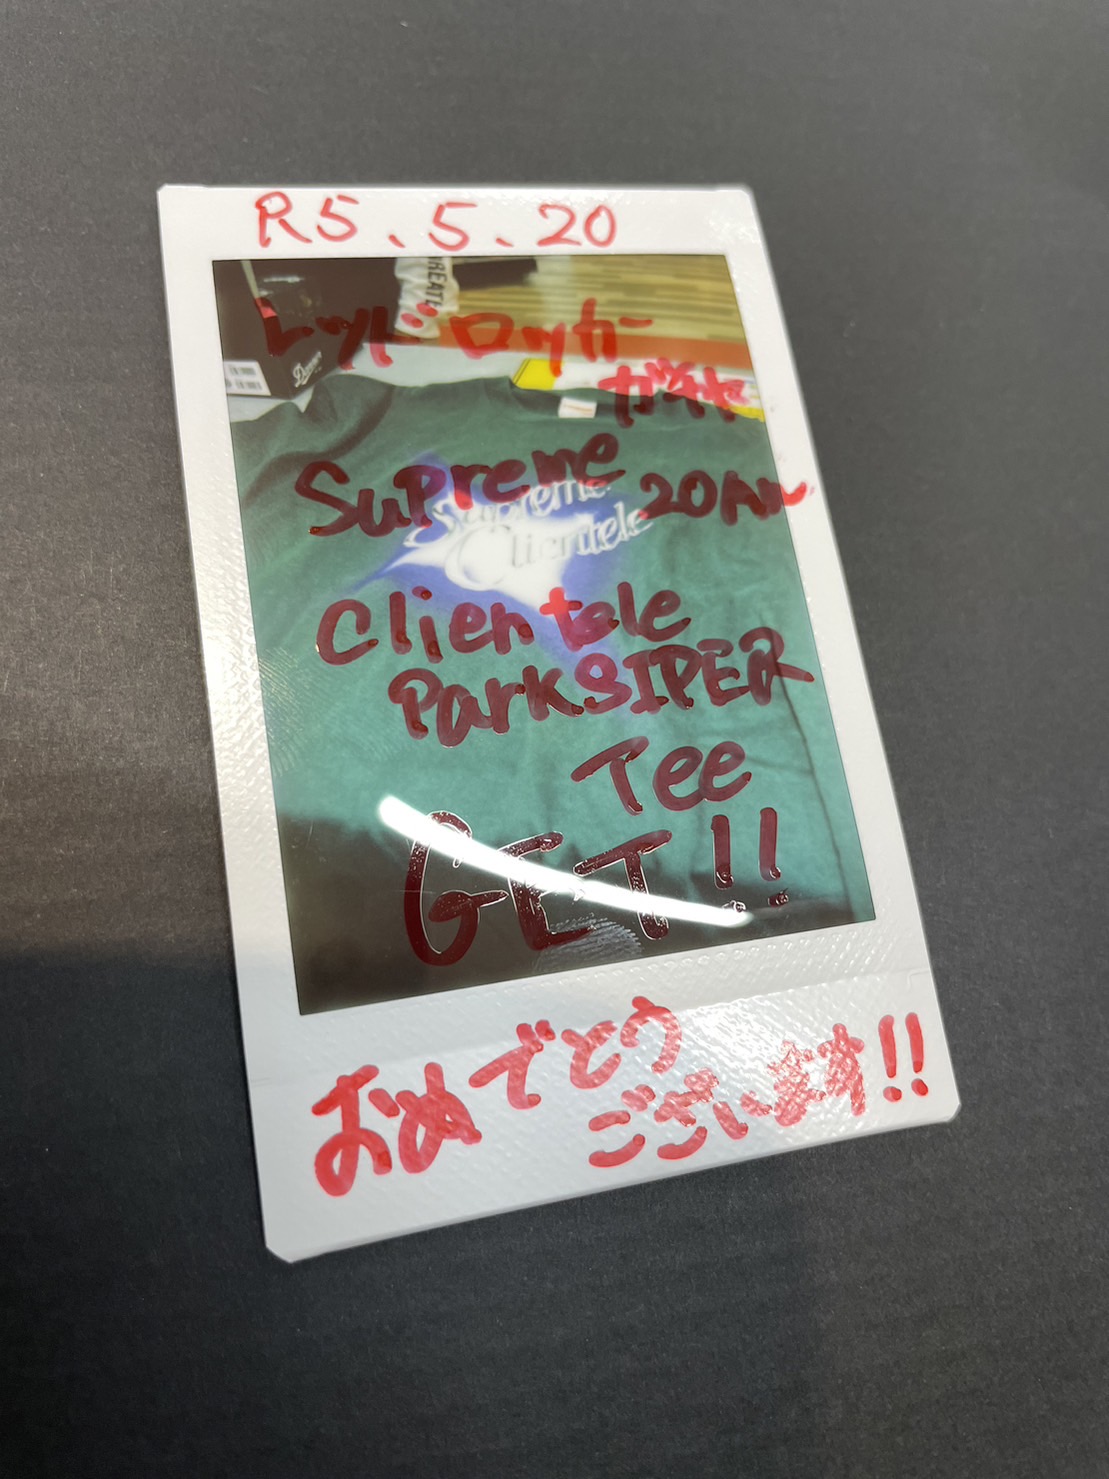 R5.5.20
REATE
レッドロッカー
ガチャ
Danner
Supreme 20Ann
Supreme
Clientele
Clientele
ParkSIPER
Tee
GET!!
おめでとう
ございます!!